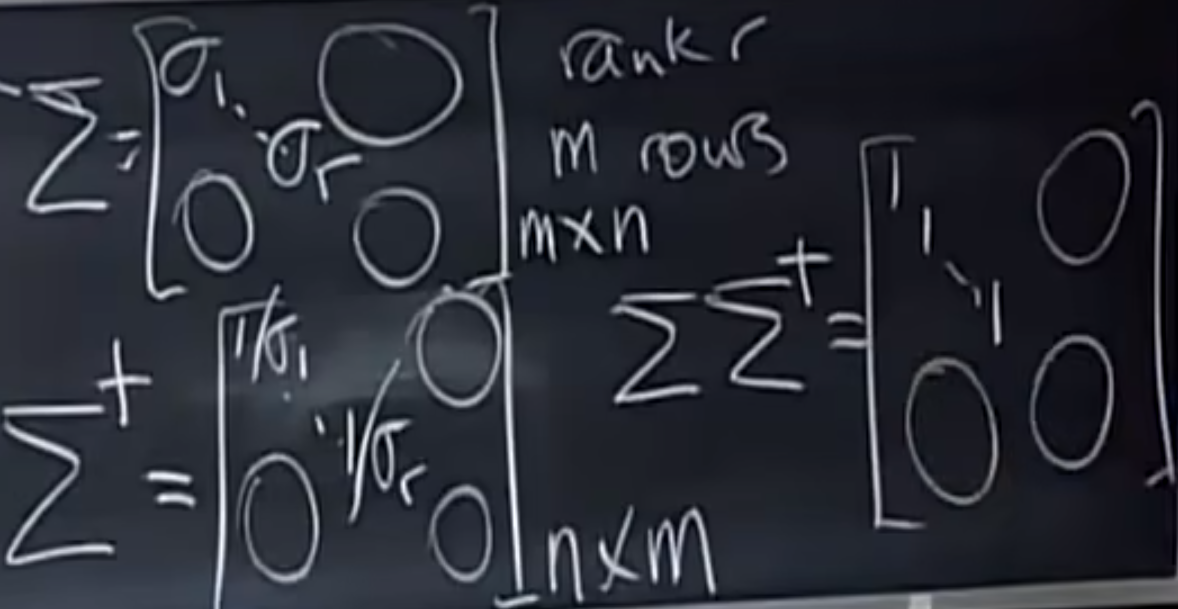 Σ = [ σ₁ ⋱ σᵣ 0 0 0 ] m×n
rank r
m rows
Σ⁺ = [ 1/σ₁ ⋱ 1/σᵣ 0 0 0 ] n×m
ΣΣ⁺ = [ 1 1 ⋱ 1 0 0 0 ]